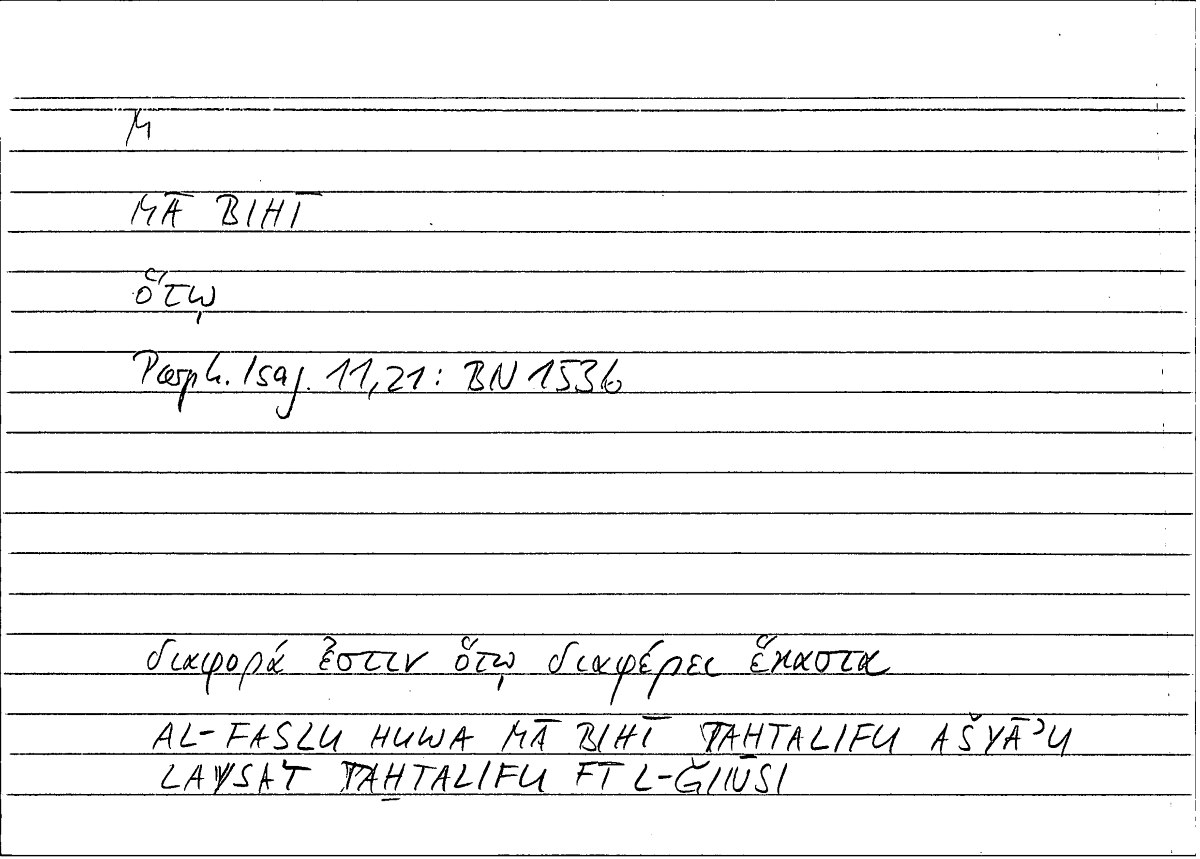 M
MĀ BIHĪ
ὅτῳ
Porph. Isag. 11,21: BN 153b
διαφορά ἐστιν ὅτῳ διαφέρει ἕκαστα
AL-FASLU HUWA MĀ BIHĪ TAHTALIFU AŠYĀʾU
LAYSAT TAḪTALIFU FĪ L-ǦINSI